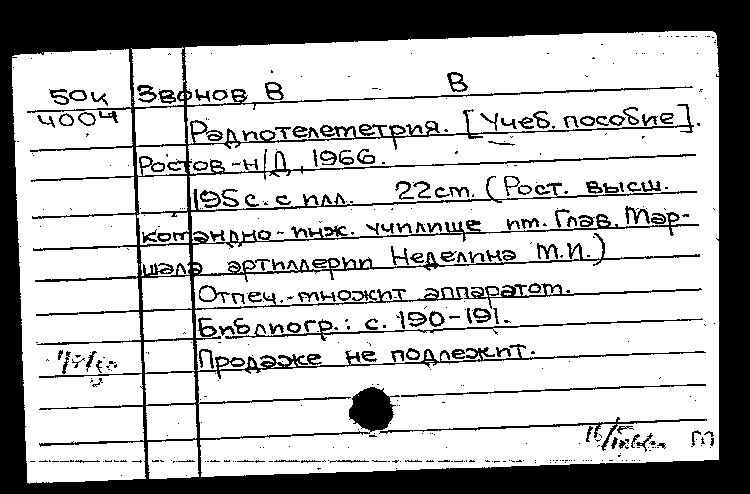 50к Звонов, В В
4004
Радиотелеметрия. [Учеб. пособие].
Ростов-н/Д, 1966.
195с. с илл. 22см. (Рост. высш.
командно-инж. училище им. Глав. Мар-
шала артиллерии Неделина М.И.)
Отпеч. множит аппаратом.
Библиогр.: с. 190-191.
Продаже не подлежит.